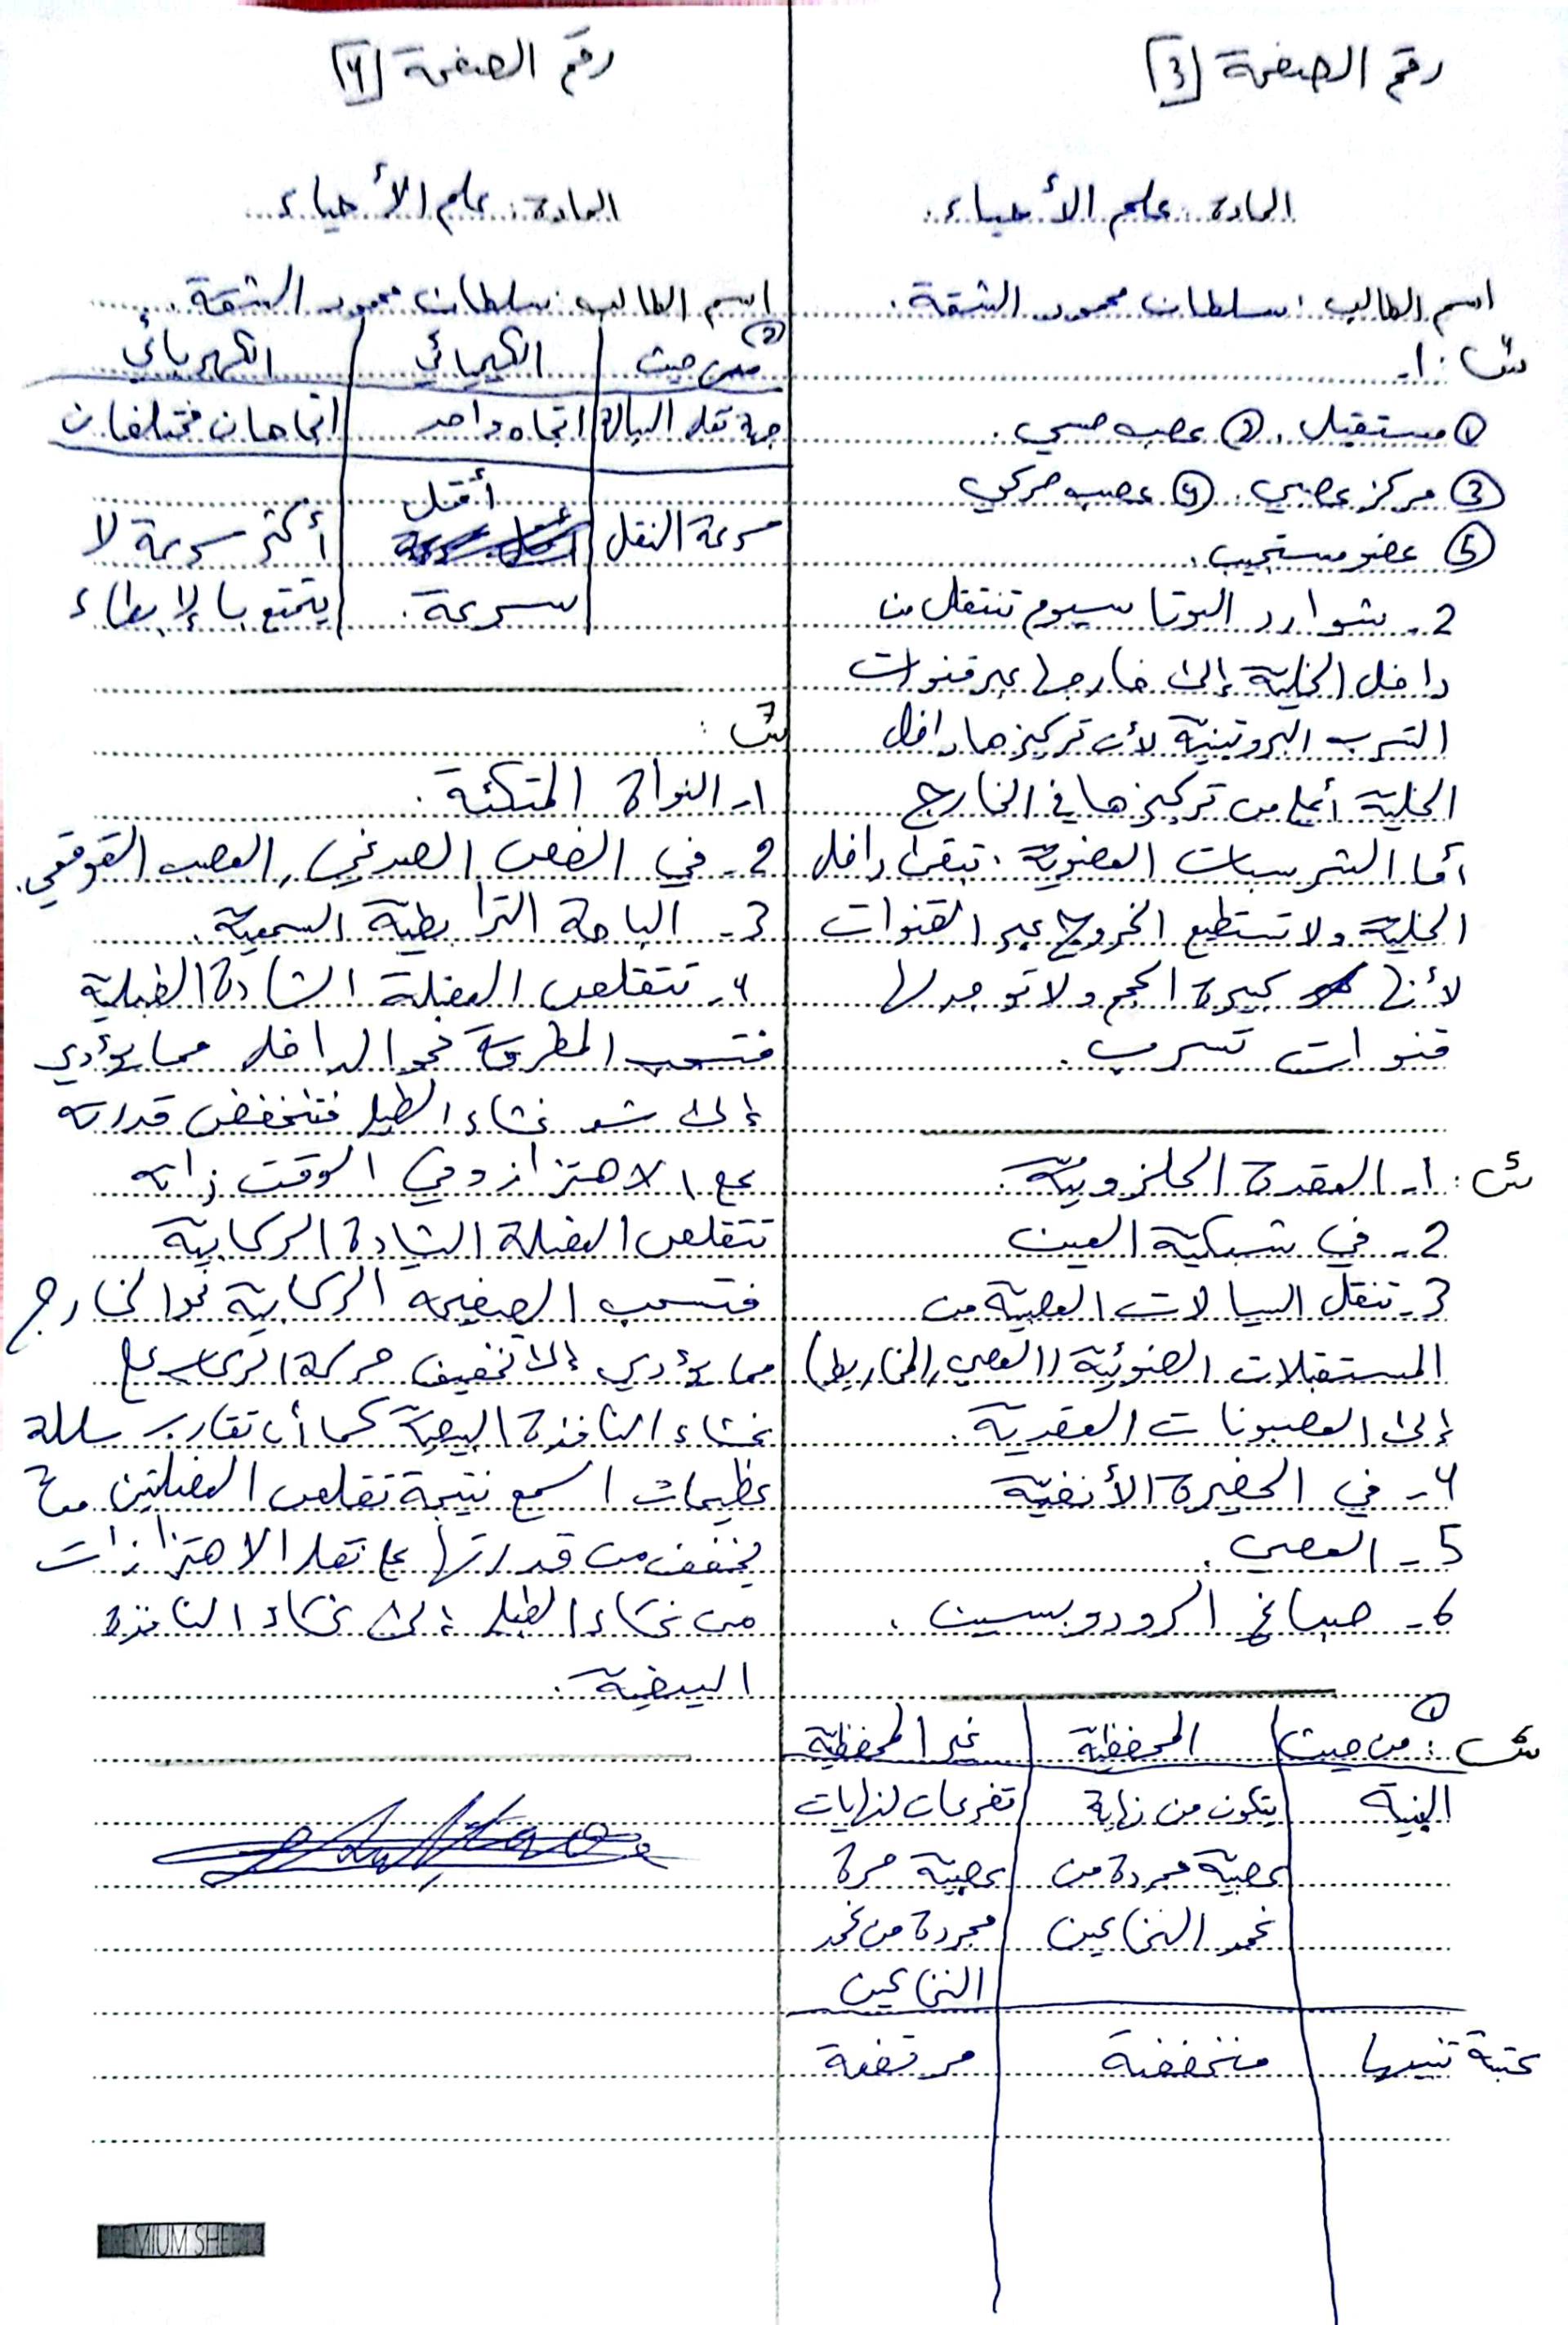 رقم الصفحة [3]
المادة: علم الأحياء.
اسم الطالب: سلطان محمود الشقة.
س: 1-
① مستقبل. ② عصب حسي.
③ مركز عصبي. ④ عصب حركي
⑤ عضو مستجيب.
2- شوارد البوتاسيوم تنتقل من
داخل الخلية إلى خارجها عبر قنوات
التسرب البروتينية لأن تركيزها داخل
الخلية أعلى من تركيزها في الخارج
أما الشرسبات العضوية: تبقى داخل
الخلية ولا تستطيع الخروج عبر القنوات
لأنها كبيرة الحجم ولا توجد لها
قنوات تسرب.
س: 1- العقدة الحلزونية.
2- في شبكية العين
3- تنقل السيالات العصبية من
المستقبلات الضوئية (العصي, المخاريط)
إلى العصبونات العقدية.
4- في الحفيرة الأنفية
5- العصي.
6- صباغ الرودوبسين.
س: ① من حيث المحفظية غير المحفظية
البنية يتكون من نهاية تفرعات لنهايات
عصبية مجردة من عصبية حرة
غمد النخاعين مجردة من غمد
النخاعين
عتبة تنبيهها منخفضة مرتفعة
رقم الصفحة [4]
المادة: علم الأحياء.
اسم الطالب: سلطان محمود الشقة.
② من حيث الكيميائي الكهربائي
جهة نقل السيالة اتجاه واحد اتجاهان مختلفان
أقل
سرعة النقل أكثر سرعة لا
سرعة. يتمتع بالإبطاء
س:
1- النواة المتكئة.
2- في الفص الصدغي, العصب القوقعي.
3- الباحة الترابطية السمعية.
4- تتقلص العضلة الشادة الطبلية
فتسحب المطرقة نحو الداخل مما يؤدي
إلى شد غشاء الطبل فتنخفض قدرته
على الاهتزاز وفي الوقت ذاته
تتقلص العضلة الشادة الركابية
فتسحب الصفيحة الركابية نحو الخارج
مما يؤدي إلى تخفيف حركة الركاب على
غشاء النافذة البيضية كما أن تقارب سلسلة
عظيمات السمع نتيجة تقلص العضلتين معاً
يخفف من قدرتها على نقل الاهتزازات
من غشاء الطبل إلى غشاء النافذة
البيضية.
PREMIUM SHEETS